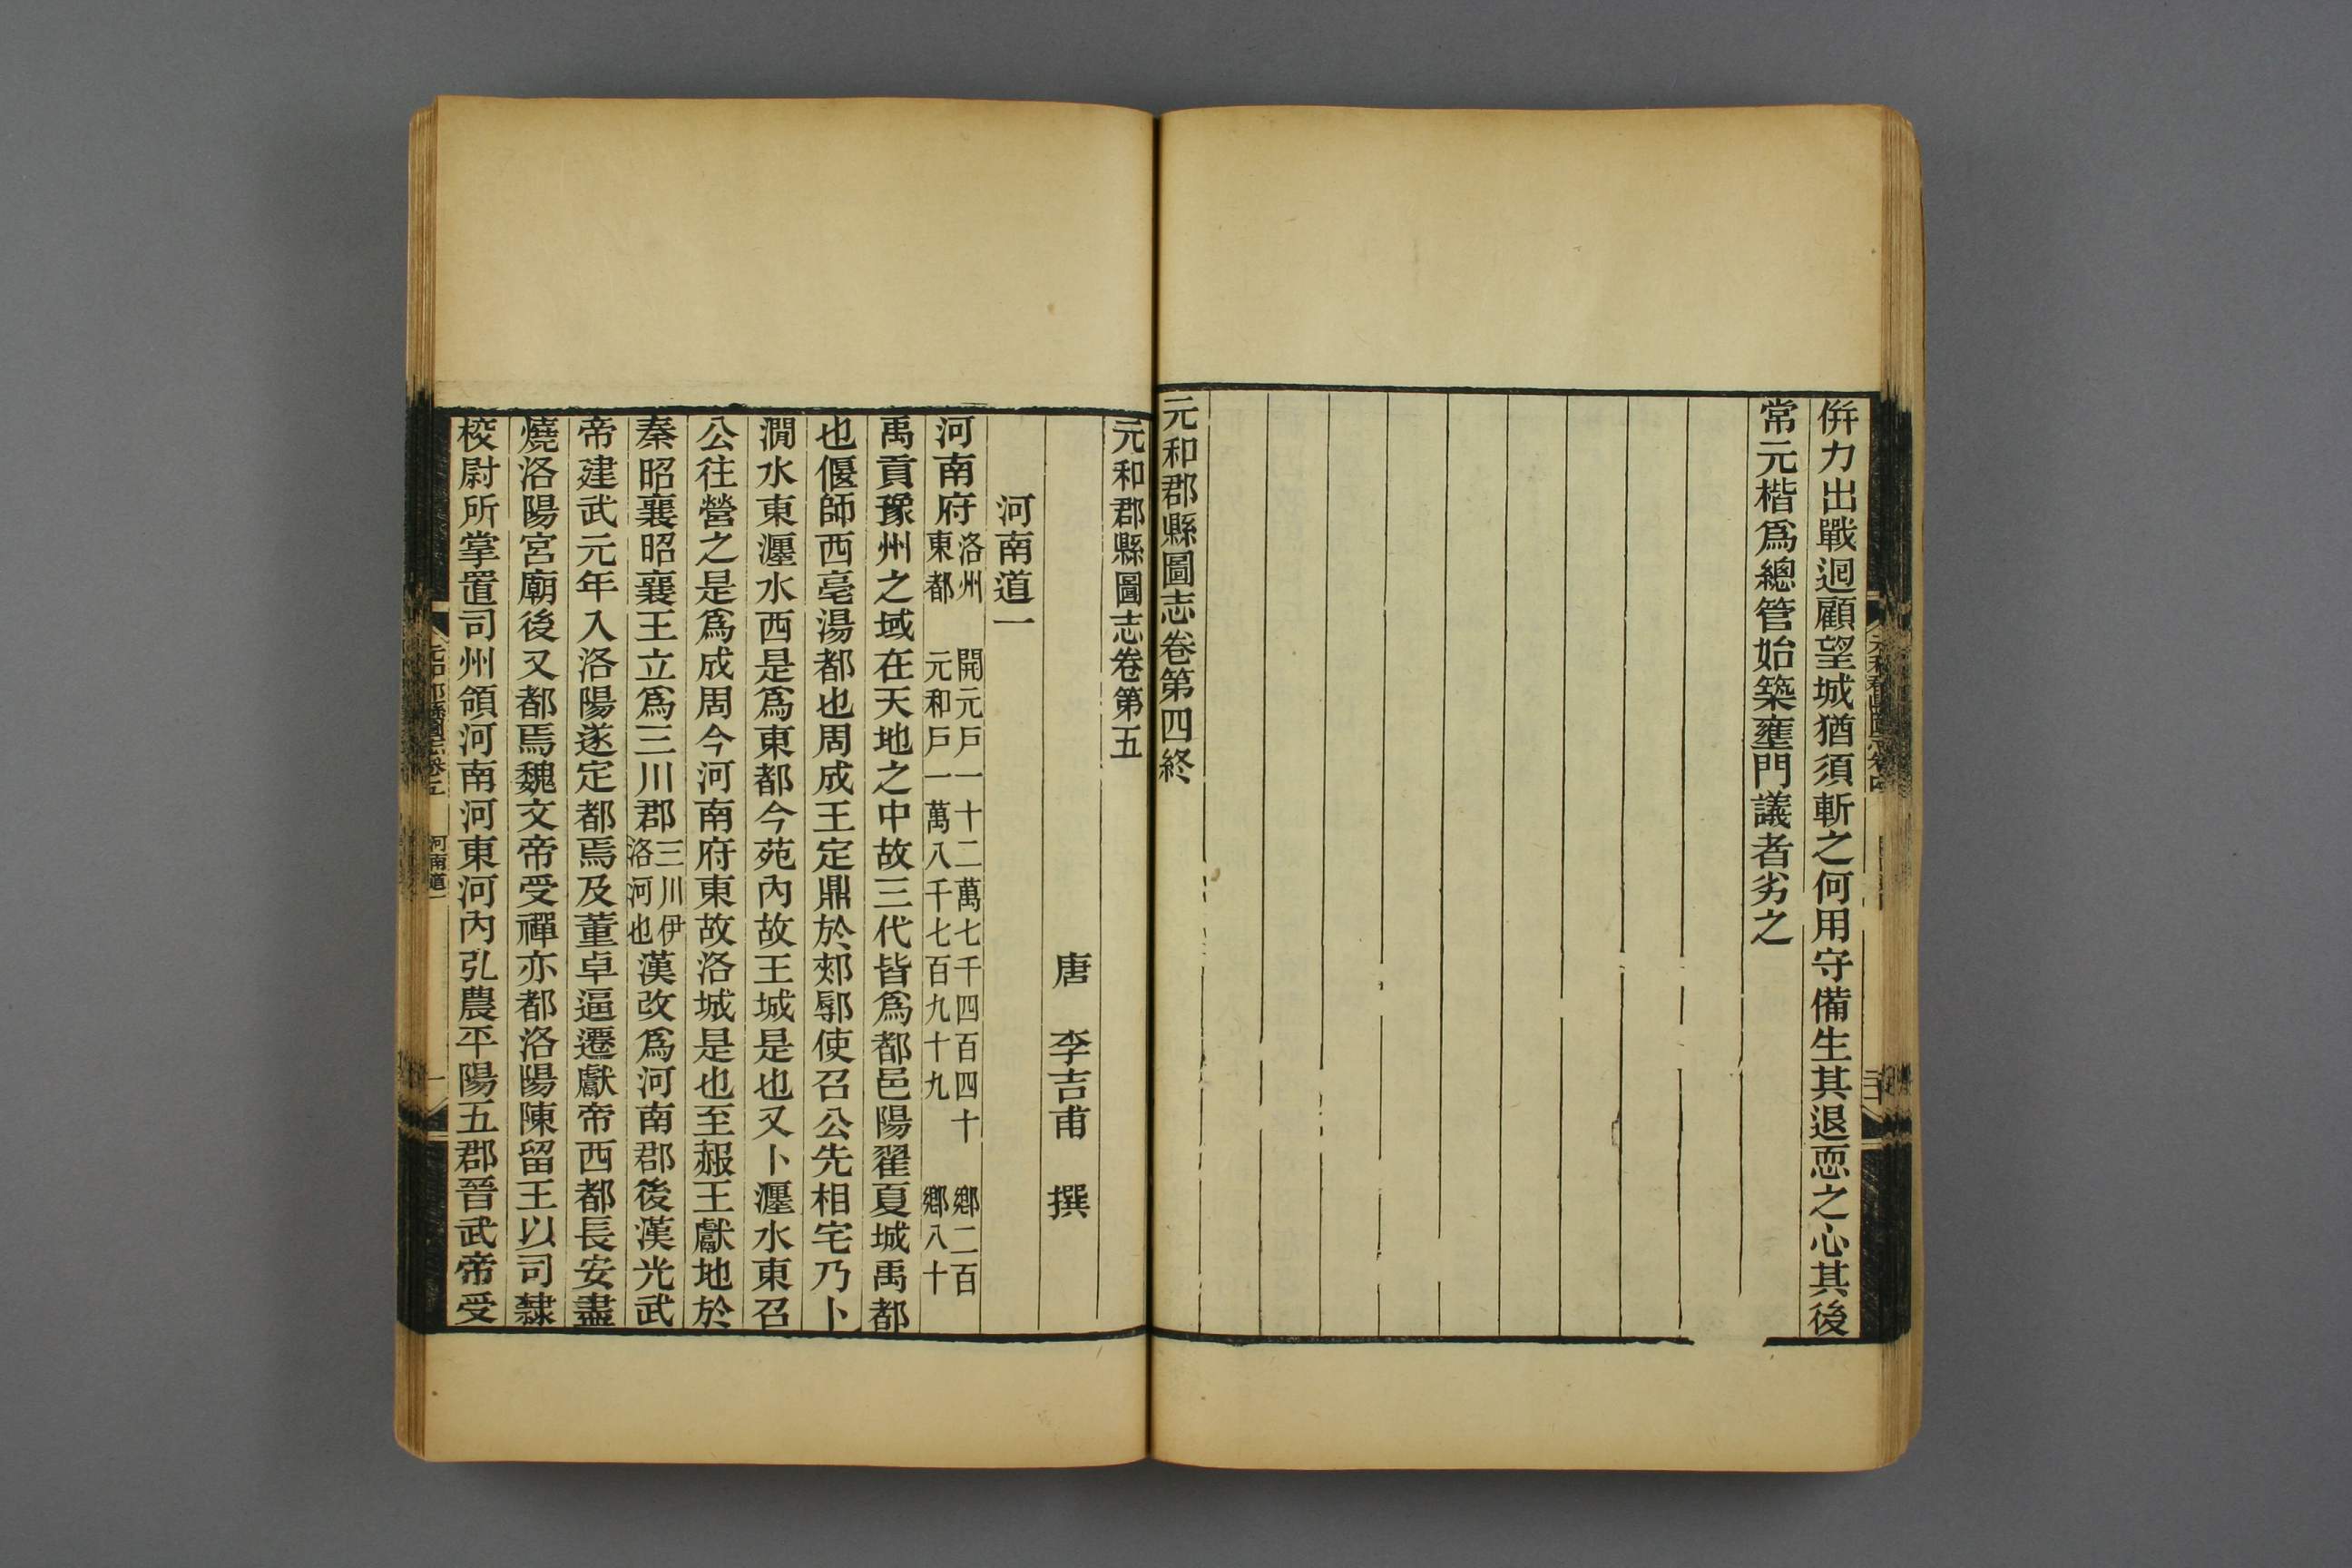 併力出戰迴顧望城猶須斬之何用守備生其退恧之心其後
常元楷爲總管始築壅門議者劣之
元和郡縣圖志卷第四終
元和郡縣圖志卷第五
唐 李吉甫 撰
河南道一
河南府 洛州 開元戶一十二萬七千四百四十 鄉二百
東都 元和戶一萬八千七百九十九 鄉八十
禹貢豫州之域在天地之中故三代皆爲都邑陽翟夏城禹都
也偃師西亳湯都也周成王定鼎於郟鄏使召公先相宅乃卜
澗水東瀍水西是爲東都今苑內故王城是也又卜瀍水東召
公往營之是爲成周今河南府東故洛城是也至赧王獻地於
秦昭襄昭襄王立爲三川郡三川伊洛河也漢改爲河南郡後漢光武
帝建武元年入洛陽遂定都焉及董卓逼遷獻帝西都長安盡
燒洛陽宮廟後又都焉魏文帝受禪亦都洛陽陳留王以司隸
校尉所掌置司州領河南河東河內弘農平陽五郡晉武帝受
河南道一